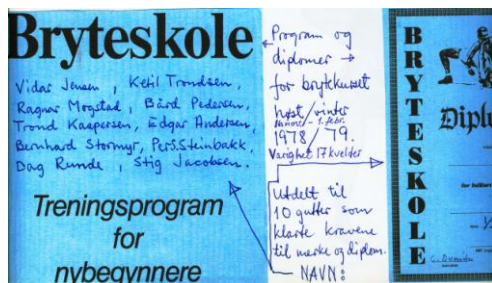 Bryteskole
Vidar Jensen, Ketil Trondsen,
Ragnar Mogstad, Bård Pedersen,
Trond Kaspersen, Edgar Andersen,
Bernhard Stormyr, Per S. Steinbakk,
Dag Runde, Stig Jacobsen.
Treningsprogram
for
nybegynnere
Program og
diplomer
for brytekurset
høst/vinter
1978/79.
Varighet 17 kvelder
Utdelt til
10 gutter som
klarte kravene
til merke og diplom.
NAVN:
BRYTESKOLE
Diplo